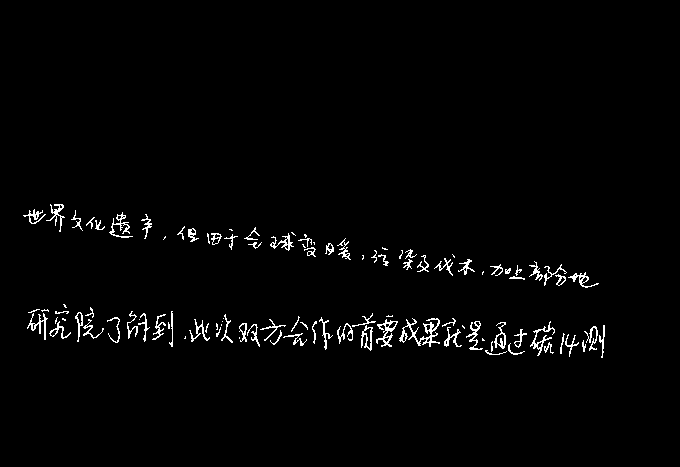 世界文化遗产,但由于全球变暖,污染及伐木,加上部分地
研究院了解到,此次双方合作的首要成果就是通过碳14测